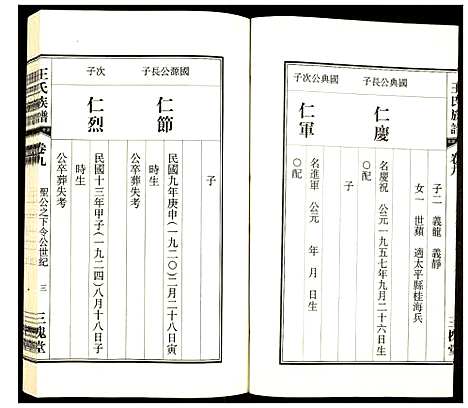 王氏族譜
卷九
三槐堂
子二 義龍 義靜
女一 世蘋 適太平縣桂海兵
國典公長子
仁慶
名慶祝 公元一九五七年九月二十六日生
〇配
子
國典公次子
仁軍
名進軍 公元 年 月 日生
〇配
子
國源公長子
仁節
民國九年庚申(一九二〇)二月二十八日寅
時生
公卒葬失考
次子
仁烈
民國十三年甲子(一九二四)八月十八日子
時生
公卒葬失考
王氏族譜
卷九
聖公之下令公世紀
三
三槐堂